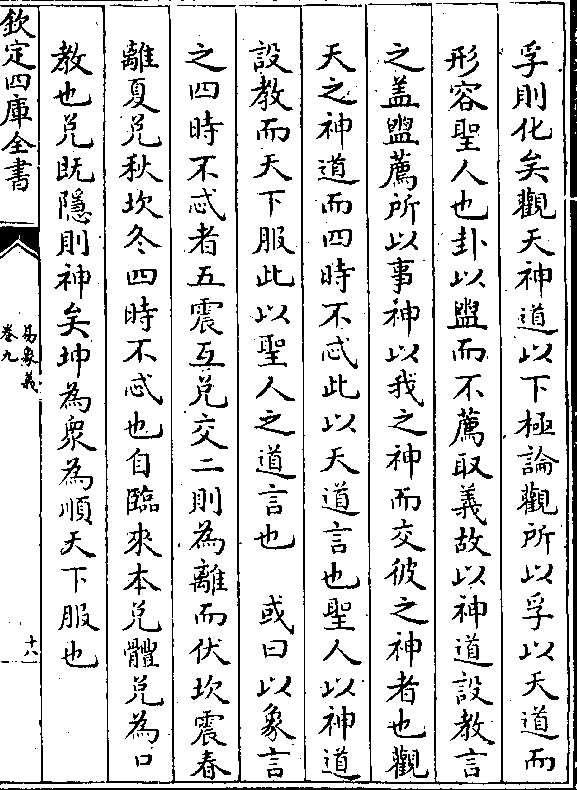 孚則化矣觀天神道以下極論觀所以孚以天道而
形容聖人也卦以盥而不薦取義故以神道設教言
之盖盥薦所以事神以我之神而交彼之神者也觀
天之神道而四時不忒此以天道言也聖人以神道
設教而天下服此以聖人之道言也　或曰以象言
之四時不忒者五震互兌交二則為離而伏坎震春
離夏兌秋坎冬四時不忒也自臨來本兌體兌為口
教也兌既隱則神矣坤為衆為順天下服也
欽定四庫全書
易象義
卷九
十八